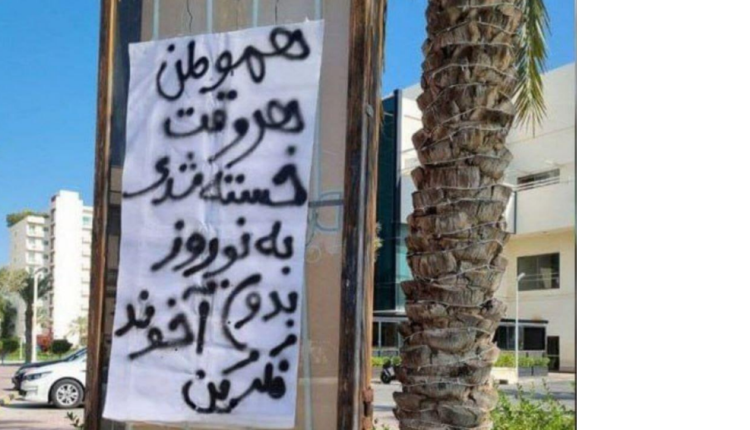 هموطن
هر وقت
خسته شدی
به نوروز
بدون آخوند
فکر کن